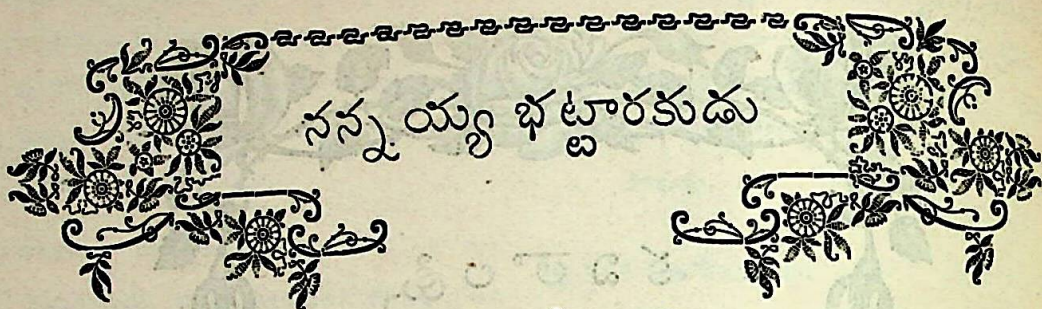 నన్నయ్య భట్టారకుడు